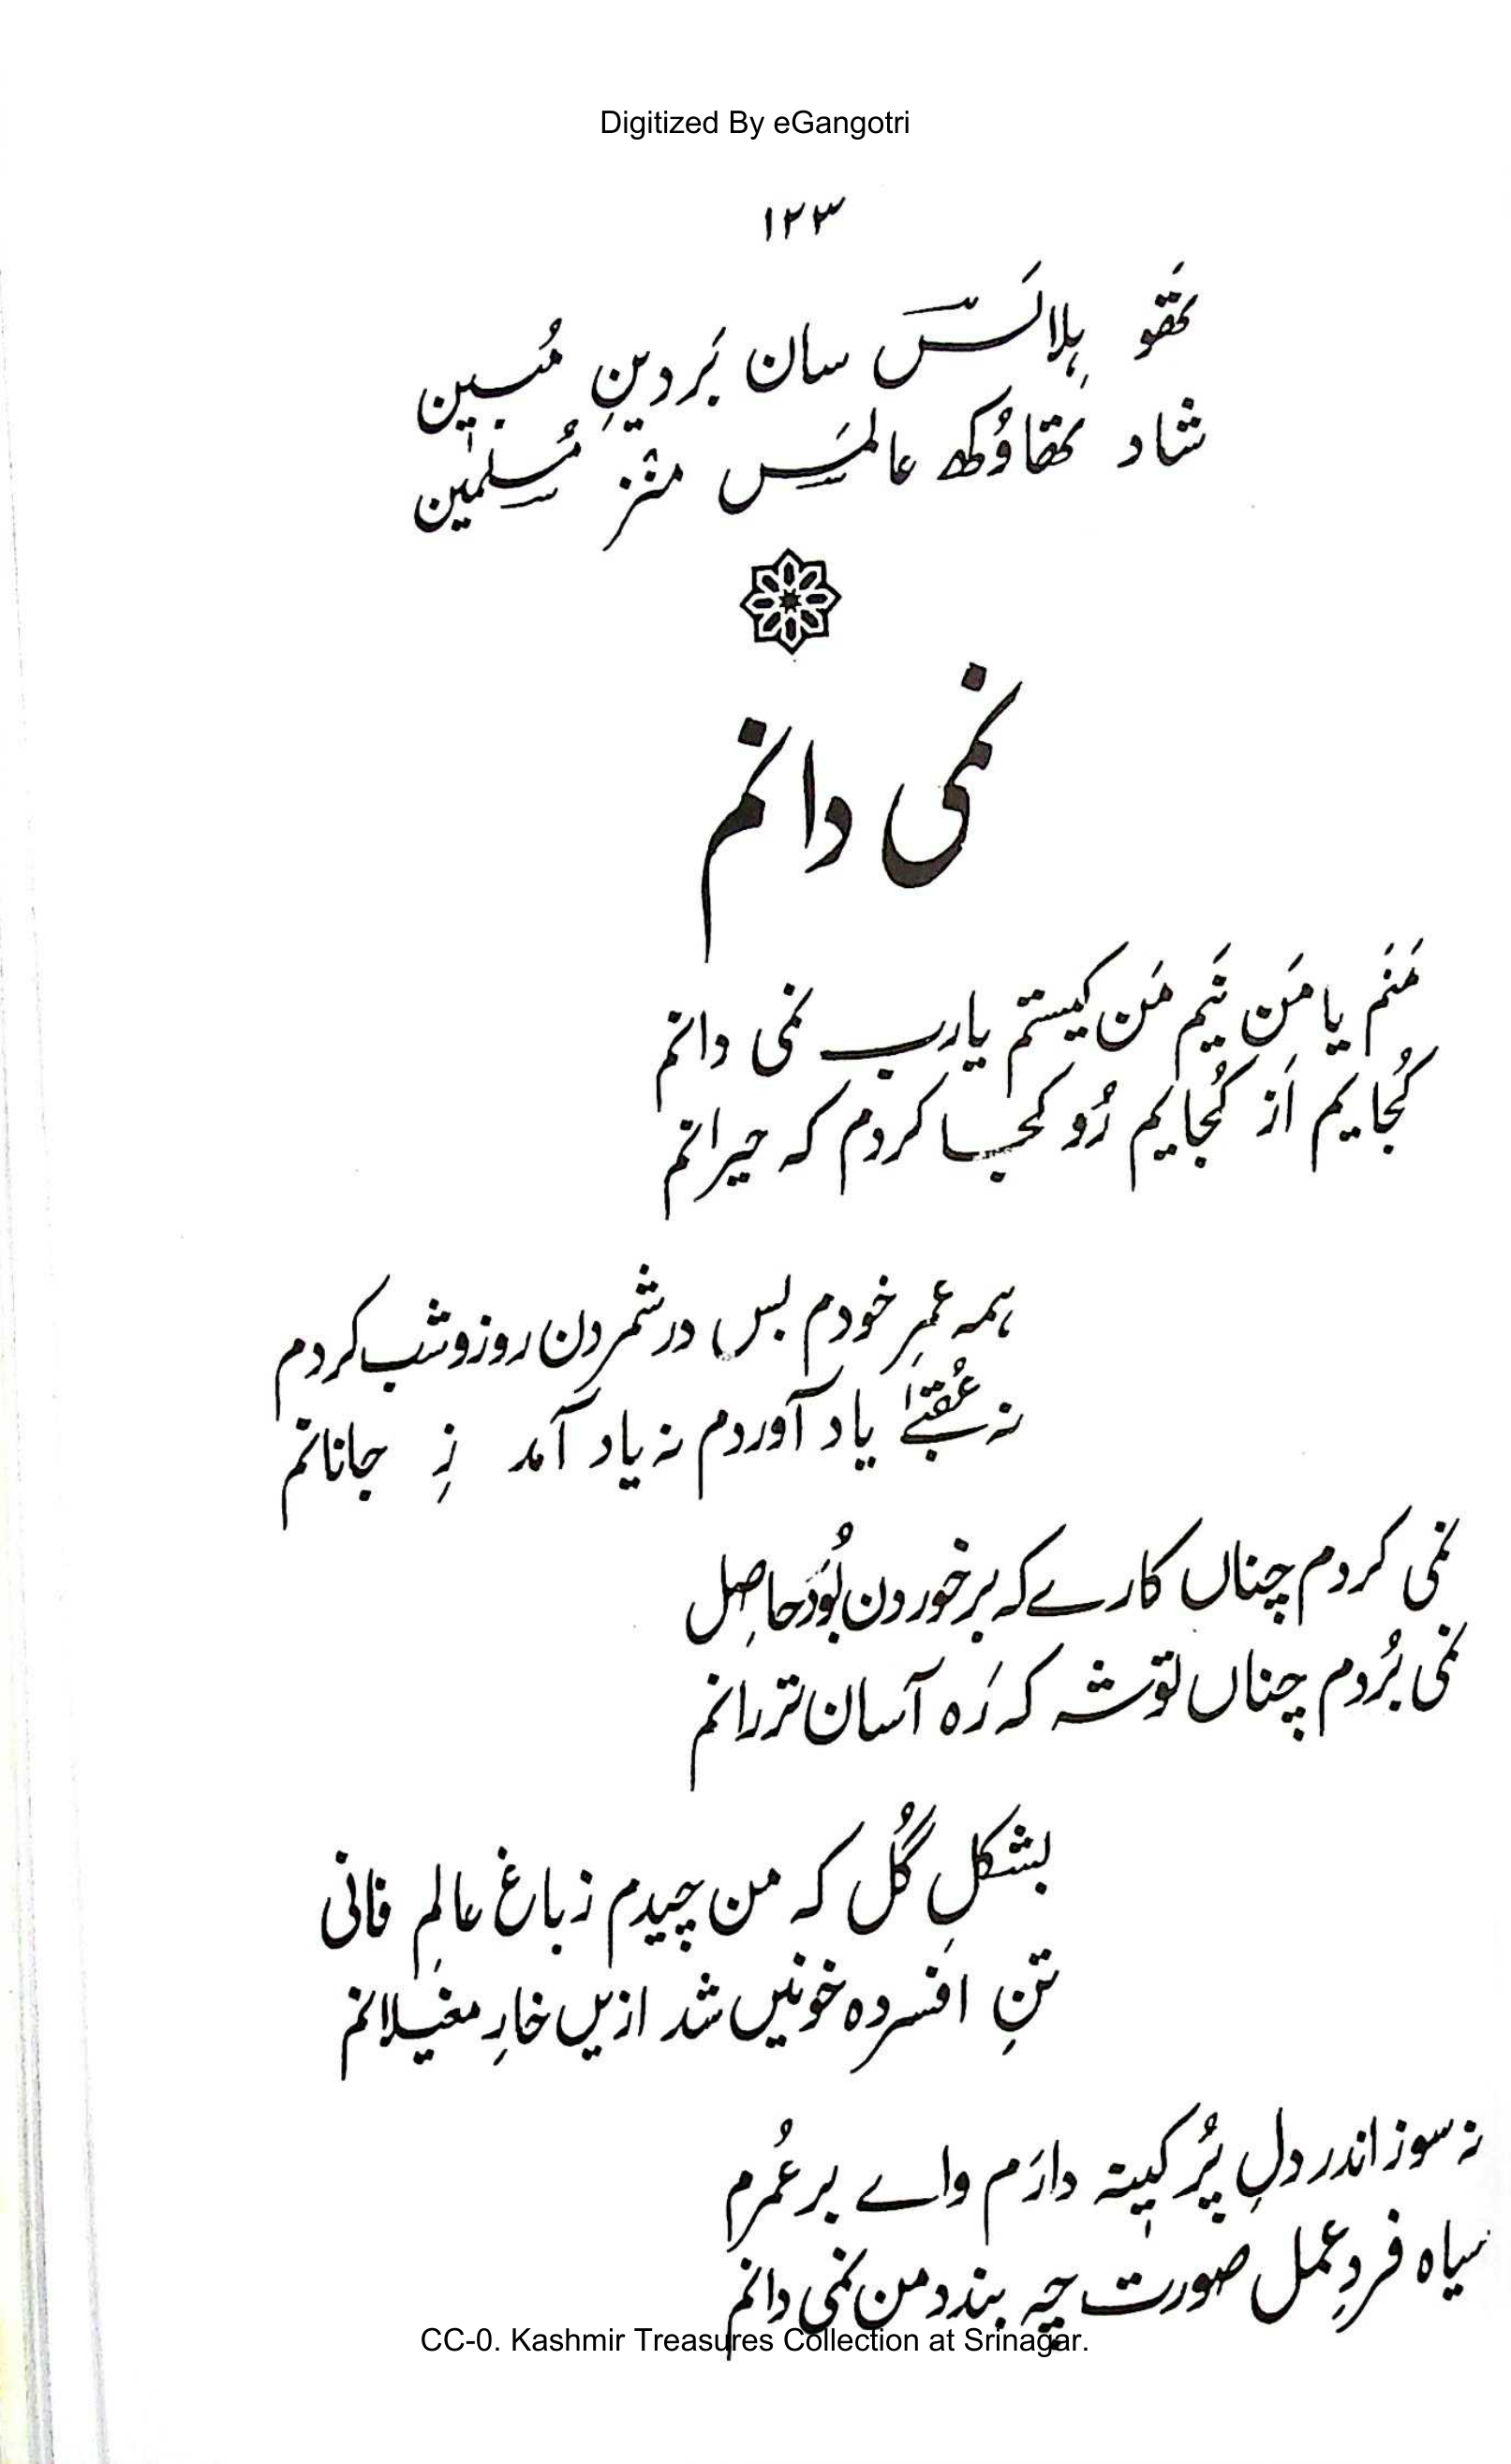 Digitized By eGangotri
۱۲۳
تھقو ہِلالَسّ سان بَر دینِ مُبین
شاد تھقاوُکھ عالمَس منٛز مُسلمٰین
نمی دانم
مَنَم یا مَن نَیَم مَن کیستم یا رب نمی دانم
کُجا یم اَز کُجا یم رُو کجا کردم کہ حیرانم
ہمہ عمرِ خودم بس در شمردن روز و شب کردم
نہ عُقبےٰ یاد آوردم نہ یاد آمد زِ جانانم
نمی کردم چناں کارے کہ بر خوردن بُوَد حاصِل
نمی بُردم چناں توشہ کہ رَہ آسان تر رانم
بشکلِ گُل کہ من چیدم ز باغ عالمِ فانی
تنِ افسردہ خونیں شد ازیں خارِ مغیلانم
نہ سوز اندر دلِ پُر کیٖنہ دارَم واے بر عُمرم
سیاہ فردِ عمل صورت چہ بندد من نمی دانم
CC-0. Kashmir Treasures Collection at Srinagar.